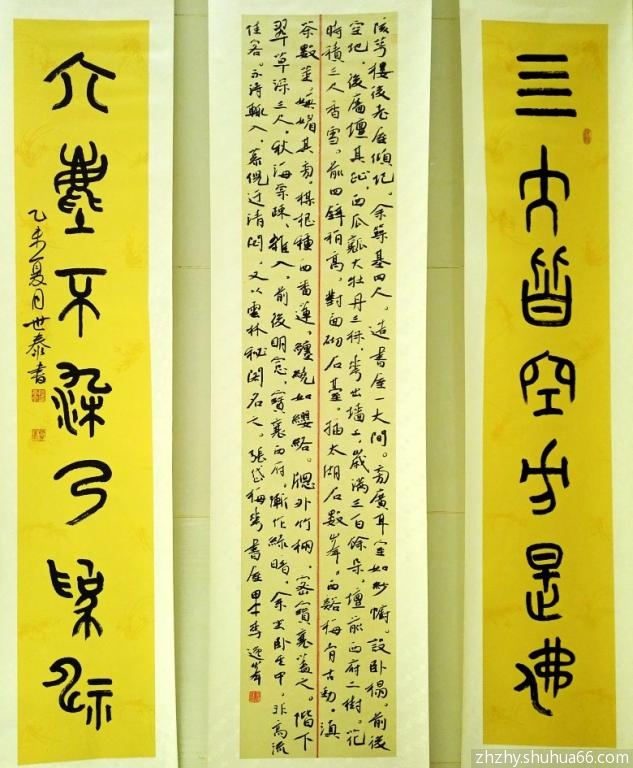 三大皆空方是佛
陔萼樓後老屋傾圮。余築基四尺。造書屋一大間。旁廣耳室如紗幮。設臥榻。前後
空地。後墻壇其趾。西瓜瓤大牡丹三株。花出墻上。歲滿三百餘朵。壇前西府二樹。花
時積三尺香雪。前四壁稍高。對面砌石臺。插太湖石數峰。西谿梅骨古勁。滇
茶數莖。嫵媚其旁。梅根種西番蓮。纏繞如纓絡。窗外竹棚。密寶襄蓋之。階下
翠草深三尺。秋海棠疎。雜入。前後明窗。寶襄西府。漸作綠暗。余坐臥其中。非高流
佳客。不得輒入。慕倪迂清閟。又以雲林秘閣名之。張岱梅花書屋 甲午 逸峯
六塵不染乃
乙未夏月世泰書
zhzhyshuhua66.com